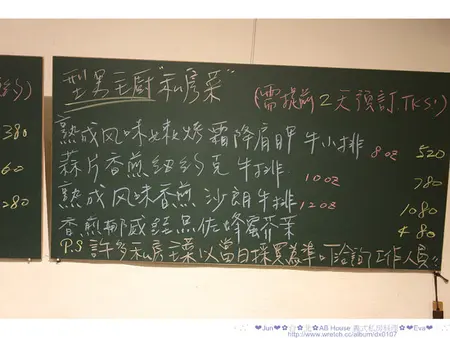 型男主廚"私房菜"
(需提前2天預訂.TKS!)
熟成风味火烤霜降肩胛牛小排 8oz 520
蒜片香煎紐約克牛排 10oz 780
熟成风味香煎沙朗牛排 12oz 1080
香煎挪威鮭魚佐蜂蜜芥茉 480
P.S 許多私房菜以當日採買為準,可洽詢工作人員!!
380
60
280
❤Jun❤✿台✿北✿AB House 義式私房料理✿❤Eva❤
http://www.wretch.cc/album/dx0107